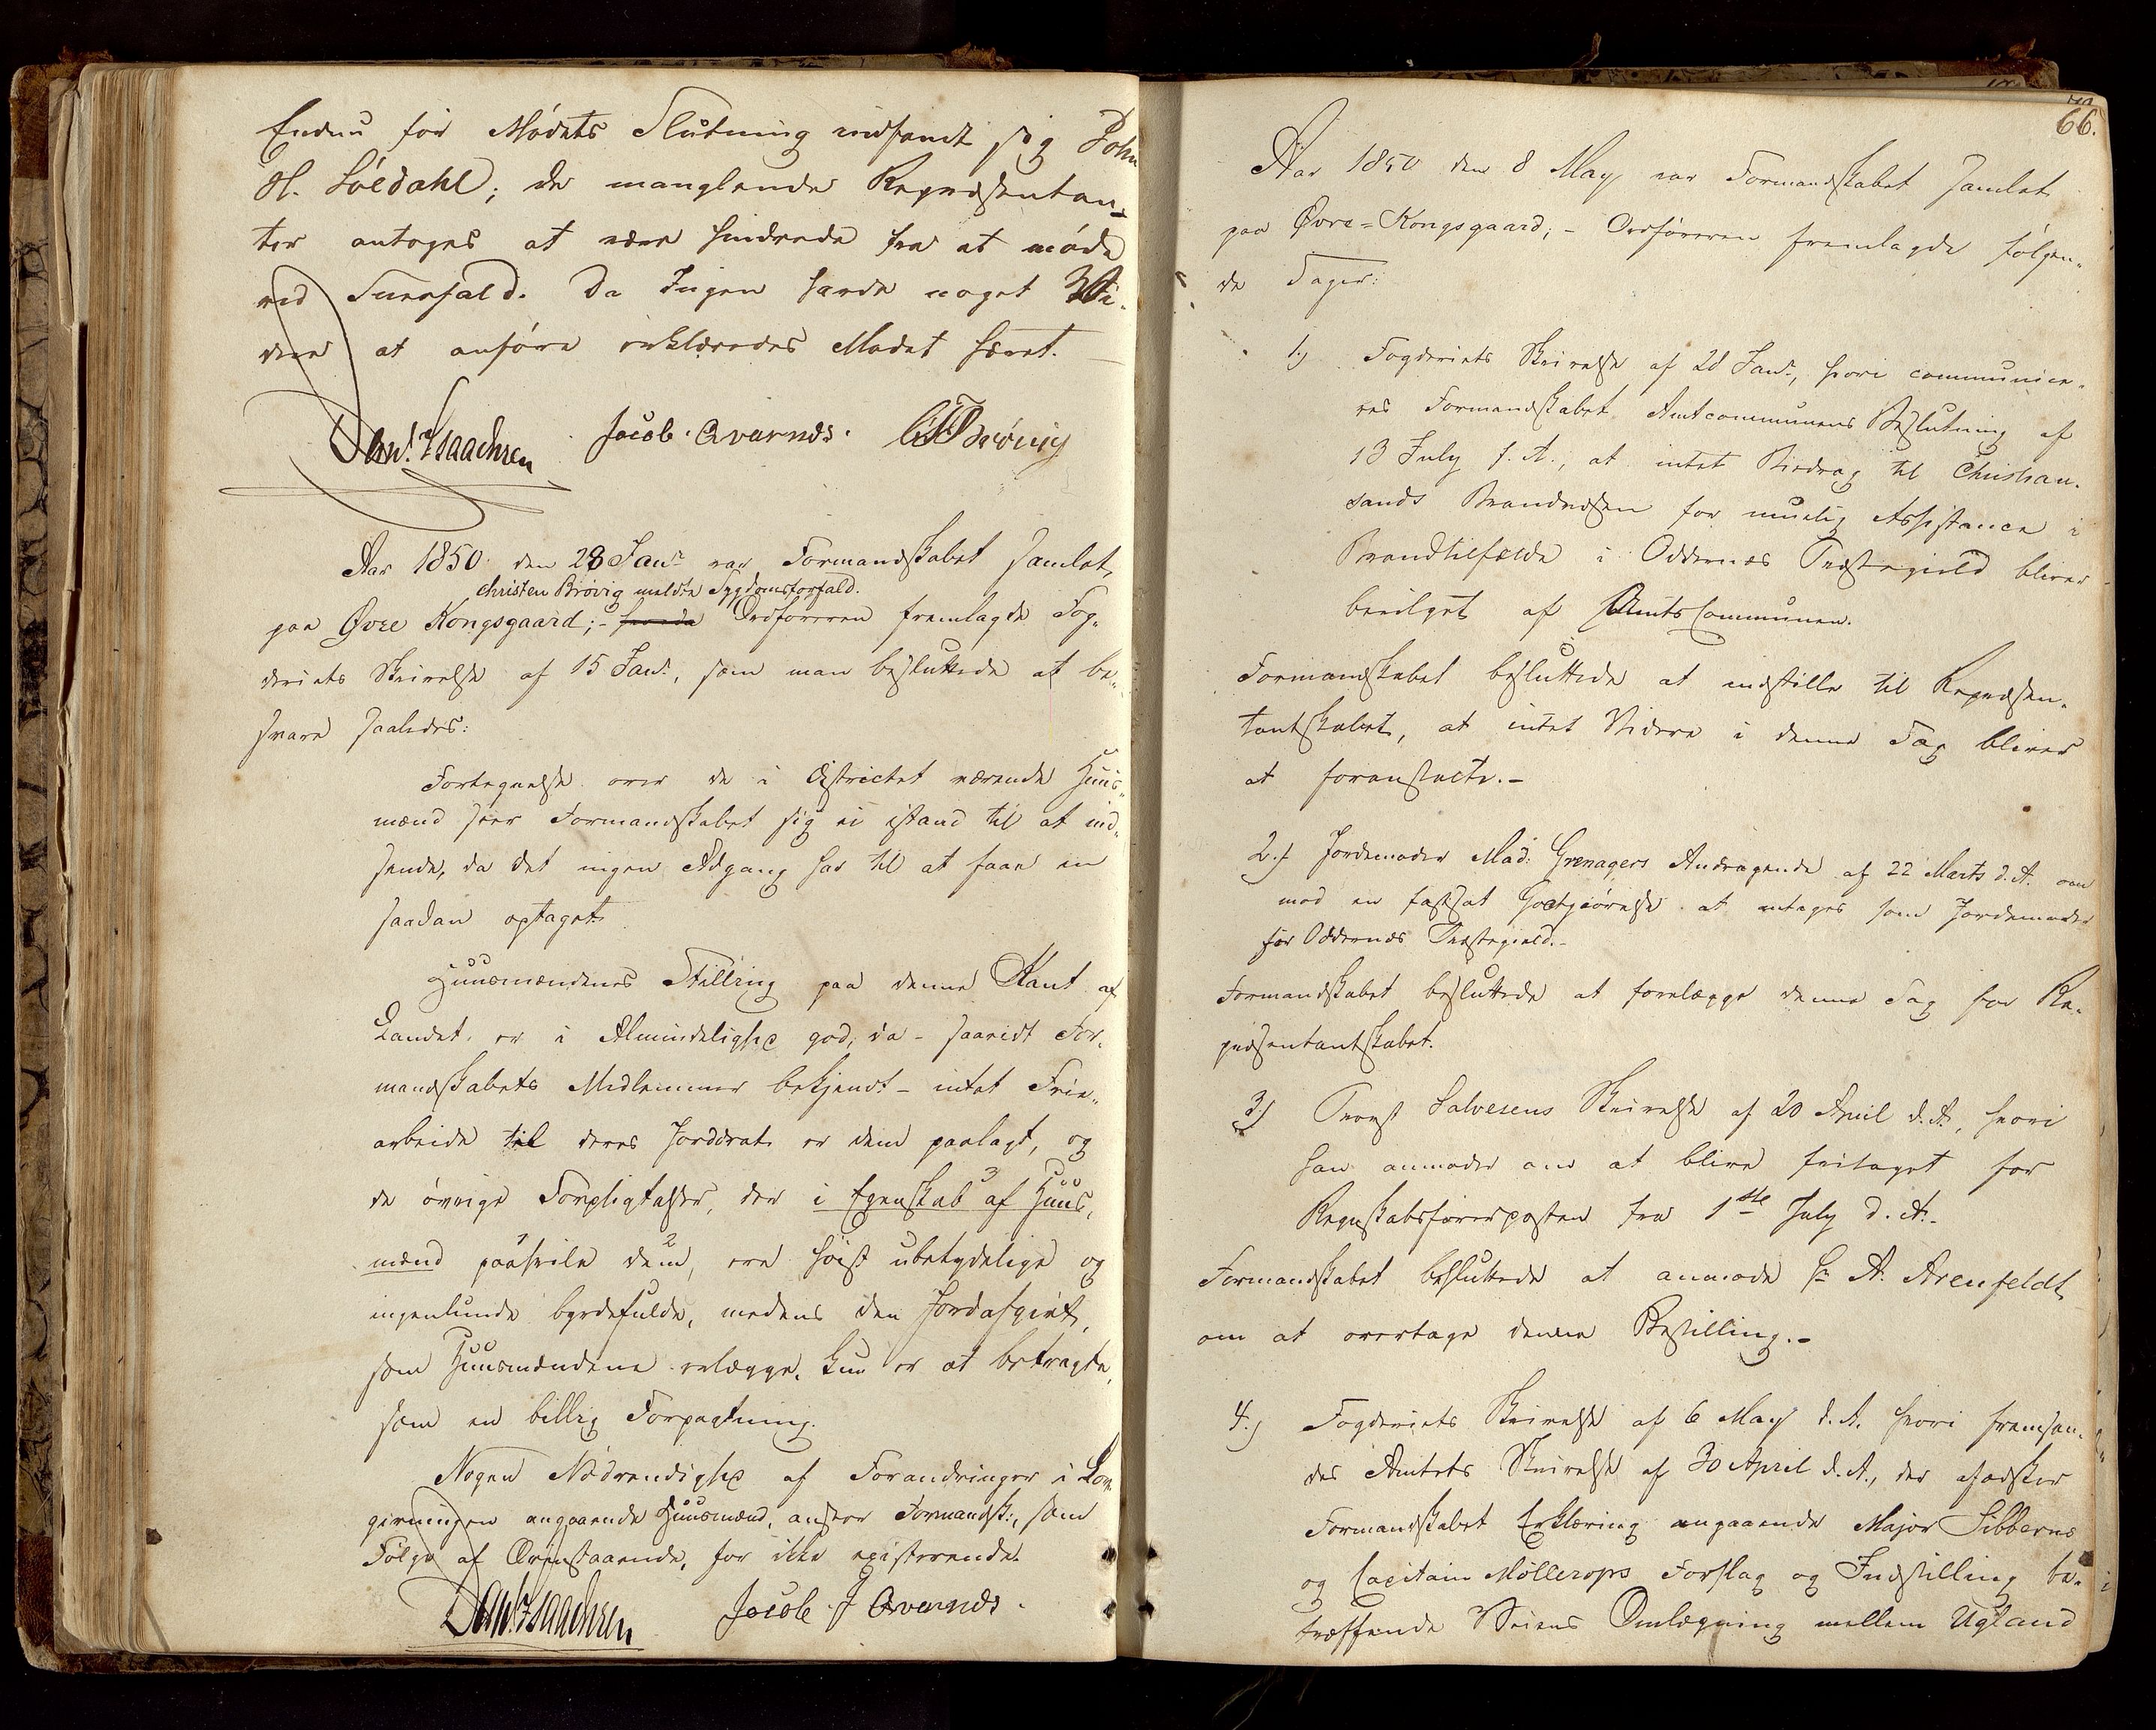 Endnu før Mødets Slutning indfandt sig John
H. Sóedahl; de manglende Repræsentan-
ter antoges at være hindrede fra at møde
ved Snefald. Da Ingen havde noget Vi-
dere at anføre erklæredes Mødet hævet. —
Dan. Isaachsen Jacob. Qvarnes. C. Brøvig
Aar 1850 den 28 Janr var Formandskabet samlet
Christen Brøvig meldte Sygdomsforfald.
paa Øvre Kongsgaard; - havde Ordføreren fremlagde Fog-
deriets Skrivelse af 15 Janr, som man besluttede at be-
svare saaledes:
Fortegnelse over de i Districtet værende Huus-
mænd seer Formandskabet sig ei istand til at ind-
sende, da det ingen Adgang har til at faae en
saadan optaget.
Huusmændenes Stilling paa denne Kant af
Landet, er i Almindelighed god, da - saavidt For-
mandskabets Medlemmer bekjendt - intet Frie-
arbeide til deres Jorddrot er dem paalagt, og
de øvrige Forpligtelser, der i Egenskab 3 af Huus-
mænd paahvile 1 dem 2, ere høist ubetydelige og
ingenlunde byrdefulde, medens den Jordafgivt,
som Huusmændene erlægge, kun er at betragte,
som en billig Forpagtning.
Nogen Nødvendighed af Forandringer i Lov-
givningen angaaende Huusmænd, anseer Formandsk:, som
Følge af Ovenstaaende, for ikke existerende.
Dan. Isaachsen Jacob J Qvarnes.
66.
Aar 1850 den 8 May var Formandskabet samlet
paa Øvre-Kongsgaard; - Ordføreren fremlagde følgen-
de Sager:
1.) Fogderiets Skrivelse af 28 Janr, hvori communice-
res Formandskabet Amtcommunens Beslutning af
13 July f. A., at intet Bidrag til Christian-
sands Brandvæsen for muelig Assistance i
Brandtilfælde i Oddernæs Præstegield bliver
bevilget af AmtsCommunen.
Formandskabet besluttede at indstille til Repræsen-
tantskabet, at intet Videre i denne Sag bliver
at foranstalte. -
2.) Jordemoder Mad: Grenagers Andragende af 22 Marts d. A. om
mod en fastsat Godtgiørelse at antages som Jordemoder
for Oddernæs Præstegield. -
Formandskabet besluttede at forelægge denne Sag for Re-
præsentantskabet.
3.) Provst Salvesens Skrivelse af 20 April d. A., hvori
han anmoder om at blive fritaget for
Regnskabsførerposten fra 1ste July d. A. -
Formandskabet besluttede at anmode Hr A. Arenfeldt
om at overtage denne Bestilling. -
4.) Fogderiets Skrivelse af 6 May d. A. hvori fremsen-
des Amtets Skrivelse af 30 April d. A., der afæsker
Formandskabet Erklæring angaaende Major Sibberns
og Capitain Møllerops Forslag og Indstilling be-
træffende Veiens Omlægning mellem Ugland